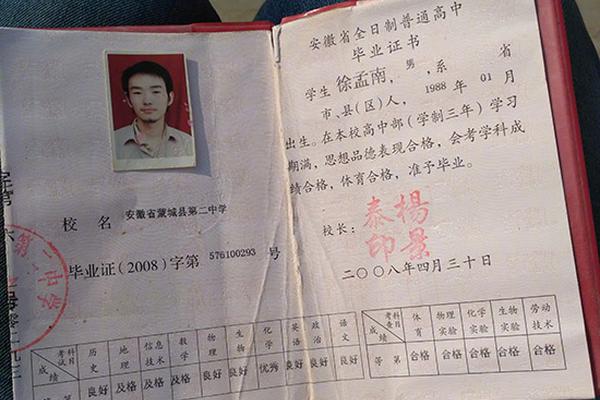 校名 安徽省蒙城县第二中学
毕业证(2008)字第 576100293 号
考试科目 历史 地理 信息技术 数学 物理 生物 化学 英语 政治 语文
成绩 良好 及格 及格 及格 良好 良好 优秀 良好 良好 良好
安徽省全日制普通高中
毕业证书
学生 徐孟南,男,系 省
市、县(区)人,1988 年 01 月
出生。在本校高中部(学制三年)学习
期满,思想品德表现合格,会考学科成
绩合格,体育合格,准予毕业。
校长:
楊景泰印
二〇〇八年四月三十日
考查科目 体育 物理实验 化学实验 生物实验 劳动技术
成绩 等第 合格 合格 合格 合格 合格
第二中学